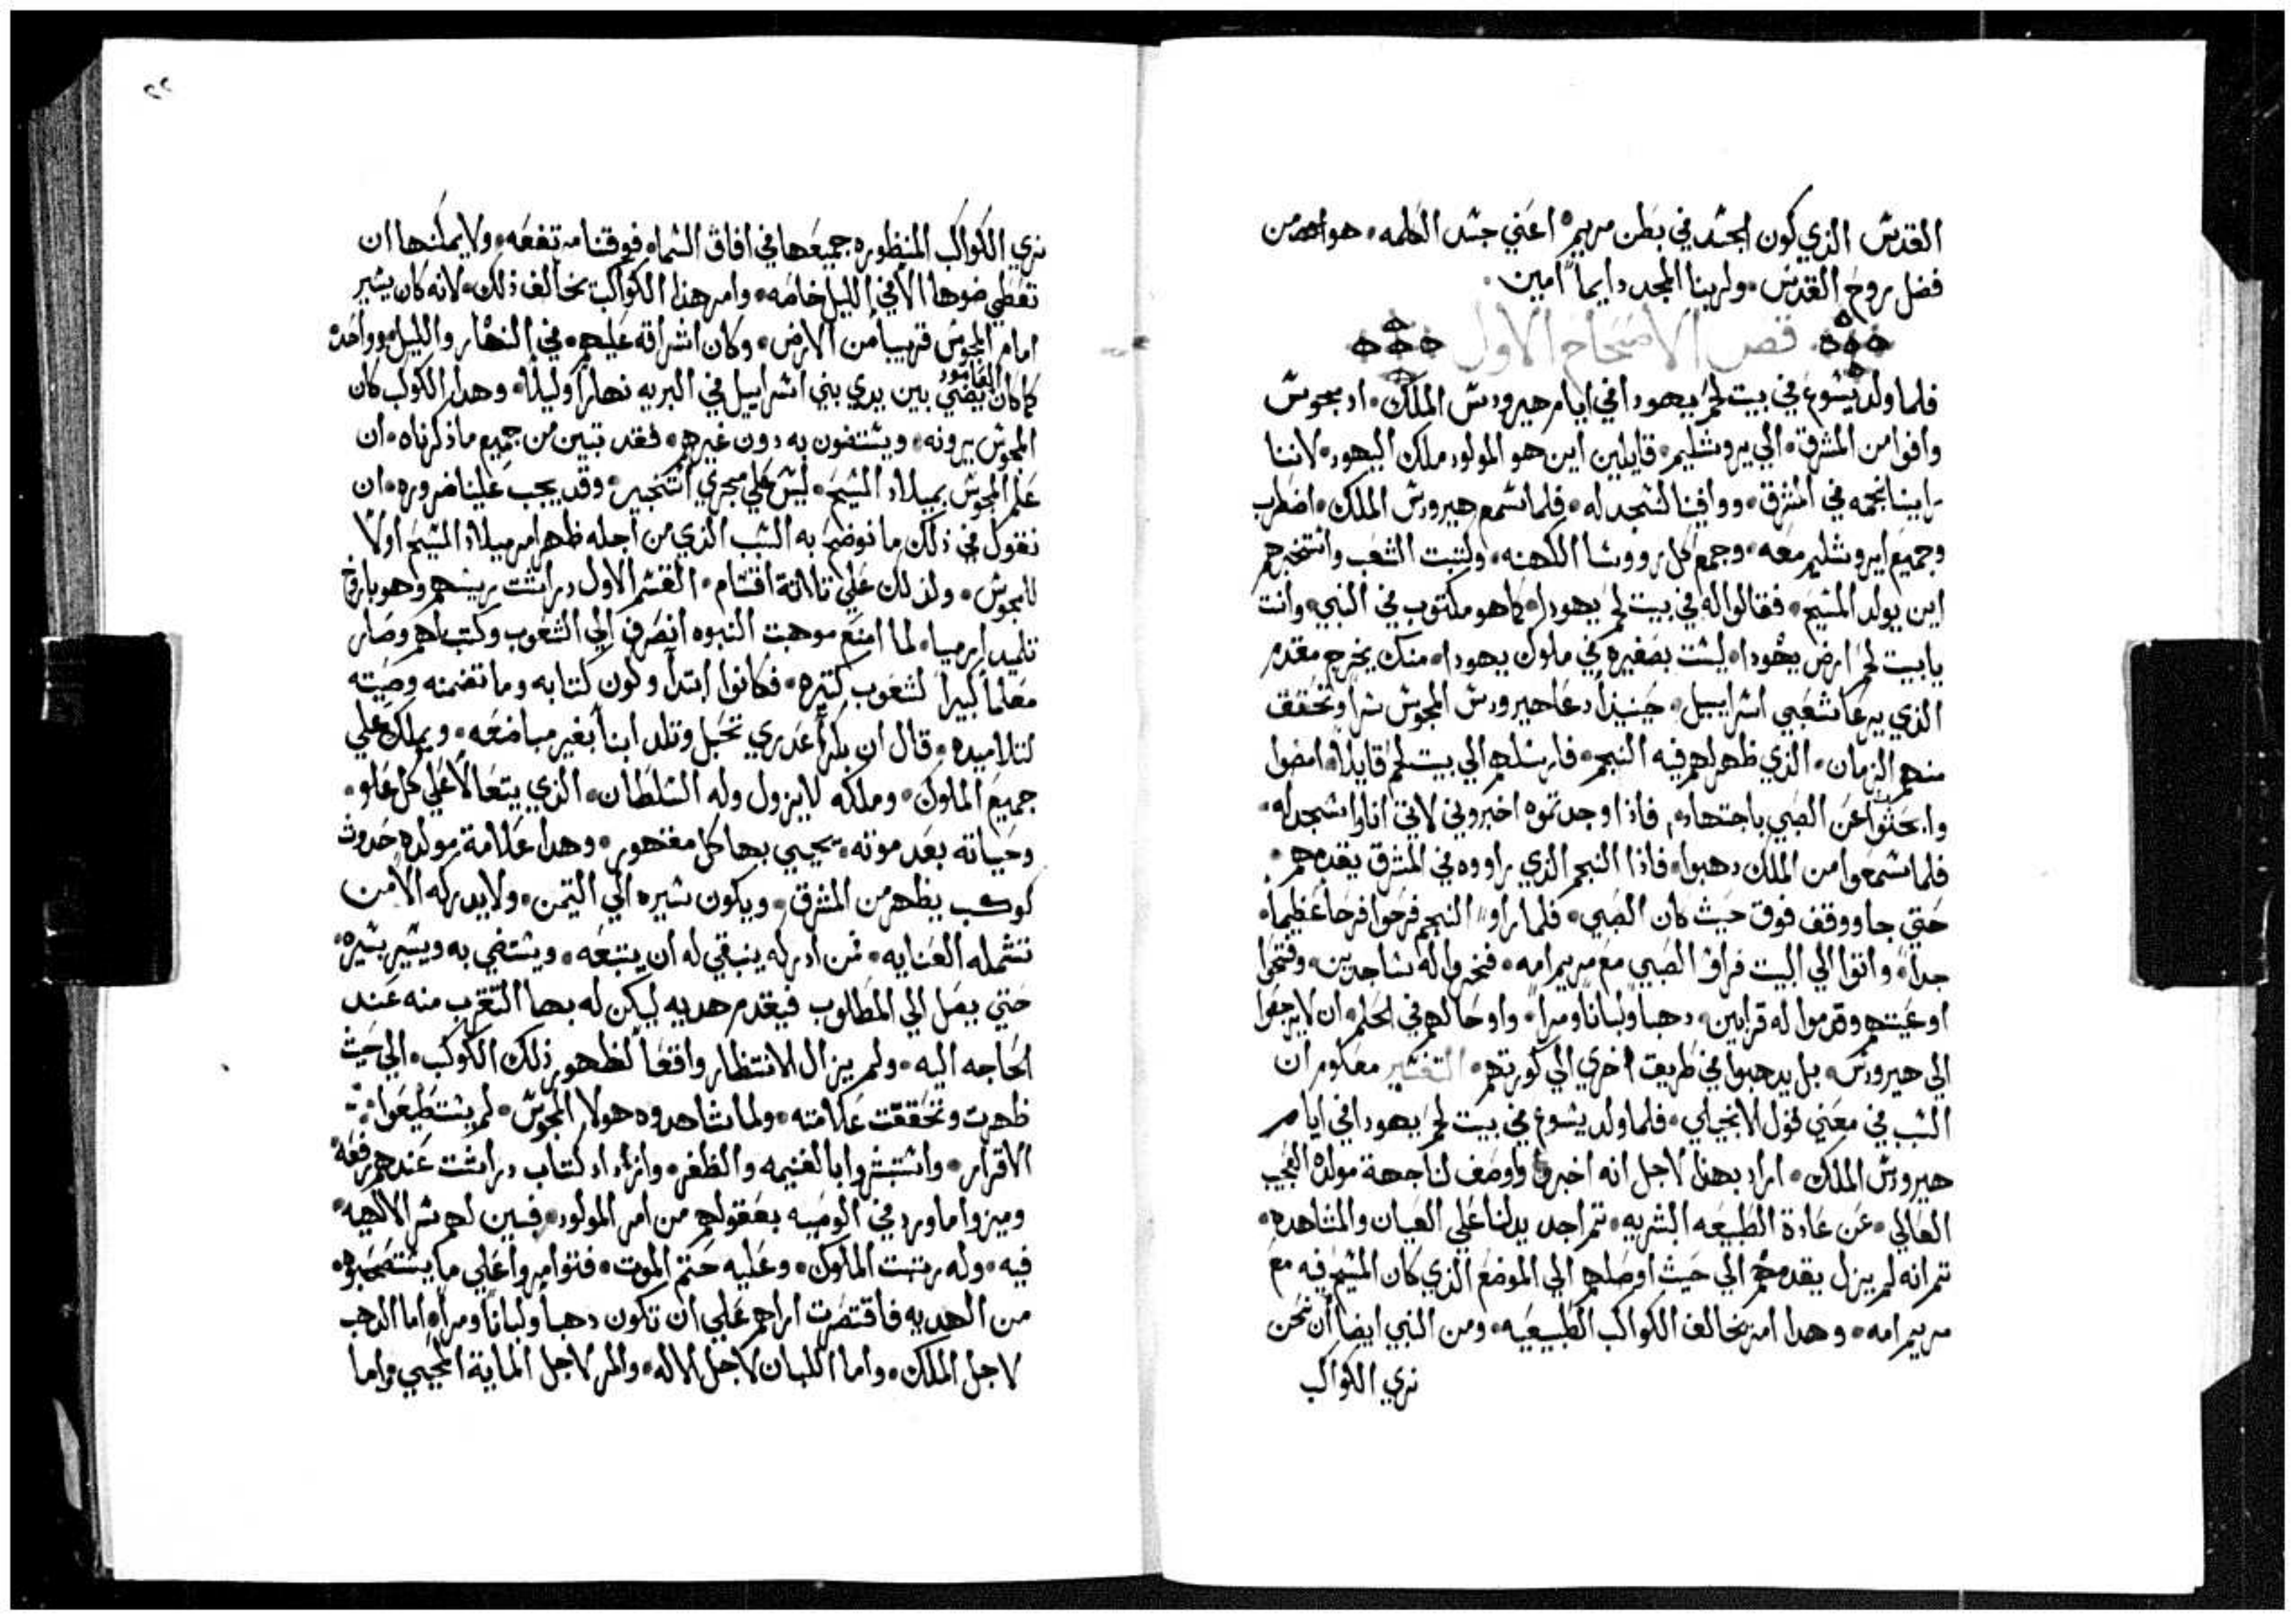 القدس الذي كون الجسد في بطن مريم • اعني جسد الكلمه • هو من
فضل روح القدس • ولربنا المجد دايماً امين •
قص الاصحاح الاول
فلما ولد يسوع في بيت لحم يهودا في ايام هيرودس الملك • اد مجوس
وافوا من المشرق • الي يروشليم • قايلين اين هو المولود ملك اليهود • لاننا
راينا نجمه في المشرق • ووافينا لنسجد له • فلما سمع هيرودس الملك • اضطرب
وجميع ايروشليم معه • وجمع كل رووسا الكهنه • وكتبت الشعب واستخبرهم
اين يولد المسيح • فقالوا له في بيت لحم يهودا • كما هو مكتوب في النبي • وانت
يا بيت لحم ارض يهودا • ليست بصغيره في ملوك يهودا • منك يخرج مقدم
الذي يرعا شعبي اسراييل • حينيذ دعا هيرودس المجوس سراً وتحقق
منهم الزمان • الذي ظهر لهم فيه النجم • فارسلهم الي بيت لحم قايلاً • امضوا
وابحثوا عن الصبي باجتهاد • فاذا وجدتموه اخبروني لاتي انا واسجد له •
فلما سمعوا من الملك دهبوا • فاذا النجم الذي راووه في المشرق يقدمهم •
حتي جا ووقف فوق حيث كان الصبي • فلما راوا النجم فرحوا فرحاً عظيماً •
جداً • واتوا الي البيت فراوا الصبي مع مريم امه • فخروا له ساجدين • وفتحوا
اوعيتهم وقدموا له قرابين • دهباً ولباناً ومراً • واوحا لهم في الحلم • ان لا يرجعوا
الي هيرودس • بل يدهبوا في طريق اخري الي كورتهم • التفسير معلوم ان
السبب في معني قول الانجيلي • فلما ولد يسوع في بيت لحم يهودا في ايام
هيرودس الملك • اراد بهذا لاجل انه اخبرنا واوصف لنا جهة مولده العجيب
العالي • عن عادة الطبيعه البشريه • تم اجد يدلنا علي العيان والمشاهده •
تم انه لم يزل يقدمهم الي حيث اوصلهم الي الموضع الذي كان المسيح فيه مع
مريم امه • وهدا امر يخالف الكواكب الطبيعيه • ومن النبي ايضاً ان نحن
نري الكواكب
٢٢
نري الكواكب المنظوره جميعها في افاق السماء فوقنا مرتفعه • ولا يمكنها ان
تعطي ضوها الا في الليل خاصه • وامر هذا الكوكب بخالف ذلك • لانه كان يسير
امام المجوس قريباً من الارض • وكان اشراقه عليهم • في النهار والليل
كما كان العامود يضي بين يدي بني اسراييل في البريه نهاراً وليلاً • وهدا الكوكب كان
المجوس يرونه • ويستضون به دون غيرهم • فقد تبين من جميع ما ذكرناه • ان
علم المجوس بميلاد المسيح • ليس علي مجري التنجيم • وقد يجب علينا ضروره • ان
نقول في ذلك ما نوضح به السبب الذي من اجله ظهر امر ميلاد المسيح اولاً
للمجوس • ولذلك علي تلاتة اقسام • القسم الاول دراشت ريسهم وهو باروخ
تلميد ارميا • لما امنع موهبت النبوه انصرف الي الشعوب وكتب لهم وصار
معلماً كبيراً لشعوب كتيره • فكانوا ابتدا وكون كتابه وما تضمنه وصيته
لتلاميده • قال ان بكراً عدري تحبل وتلد ابناً بغير مباضعه • ويملك علي
جميع الملوك • وملكه لا يزول وله السلطان • الذي يتعالا علي كل علو •
وحياته بعد موته • يحيي بها كل مقهور • وهدا علامة مولده حدوت
كوكب يظهر من المشرق • ويكون سيره الي التيمن • ولا يدركه الا من
تشمله العنايه • فمن ادركه ينبغي له ان يتبعه • ويستضي به ويسير بسيره •
حتي يصل الي المطلوب فيقدم هديه ليكن له بها التقرب منه عند
الحاجه اليه • ولم يزال الانتظار واقعاً لظهور ذلك الكوكب • الي حيت
ظهرت وتحققت علامته • ولما شاهدوه هولا المجوس • لم يستطيعوا
الاقرار • واستبشروا بالغنيمه والظفر • وازداد كتاب دراشت عندهم رفعه •
وميزوا ما ورد في الوصيه بعقولهم من امر المولود • فبين لهم سر الالهيه •
فيه • وله رتبت الملوك • وعليه حتم الموت • فتوامروا علي ما يستصحبوه •
من الهديه فاقتصرت اراهم علي ان تكون دهباً ولباناً ومراً • اما الدهب
لاجل الملك • واما اللبان لاجل الاله • والمر لاجل الماية المحيي واما